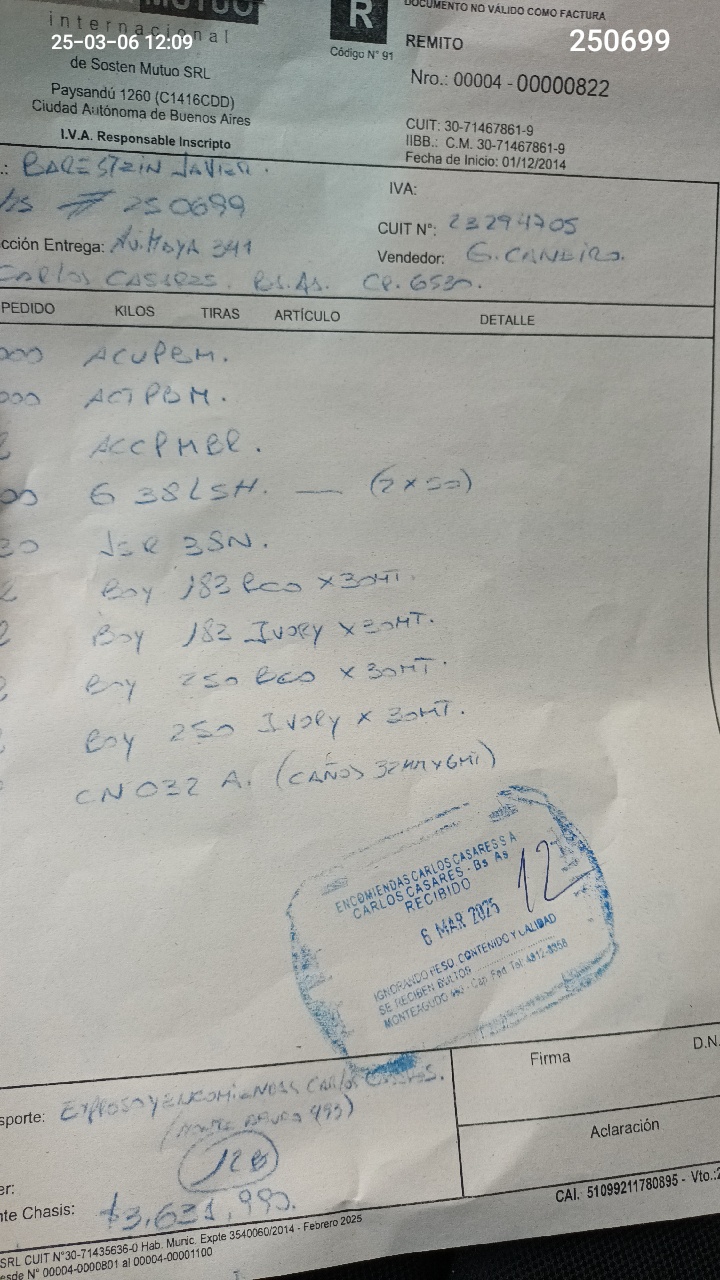 internacional
25-03-06 12:09
250699
de Sosten Mutuo SRL
Paysandú 1260 (C1416CDD)
Ciudad Autónoma de Buenos Aires
I.V.A. Responsable Inscripto
R
Código N° 91
DOCUMENTO NO VÁLIDO COMO FACTURA
REMITO
Nro.: 00004 - 00000822
CUIT: 30-71467861-9
IIBB.: C.M. 30-71467861-9
Fecha de Inicio: 01/12/2014
.: BARESTEIN JAVIER.
250699
IVA:
CUIT N°: 23294705
cción Entrega: AV. MOYA 341
Vendedor: G. CANEIRO.
CARLOS CASARES. BS.AS. CP. 6530.
PEDIDO KILOS TIRAS ARTÍCULO DETALLE
000 ACUPBM.
000 ACTPBM.
ACCPMBR.
00 G 38LSH. — (2 x 50)
30 38N.
2 Boy 183 Bco x 30MT.
2 Boy 183 IVORY x 30MT.
Boy 250 Bco x 30MT.
Boy 250 IVORY x 30MT.
CN032 A. (CAÑOS 32MM x 6MT)
ENCOMIENDAS CARLOS CASARES S A
CARLOS CASARES - Bs As
RECIBIDO
6 MAR 2025
12
IGNORANDO PESO, CONTENIDO Y CALIDAD
SE RECIBEN BULTOS
MONTEAGUDO Cap. Fed. Tel
sporte: EXPRESO Y ENCOMIENDAS CARLOS CASARES.
Firma
D.N.
Aclaración
er:
nte Chasis: $3,631,990.
CAI. 51099211780895 - Vto.:2
SRL CUIT N°30-71435636-0 Hab. Munic. Expte 3540060/2014 - Febrero 2025
esde N° 00004-0000801 al 00004-00001100